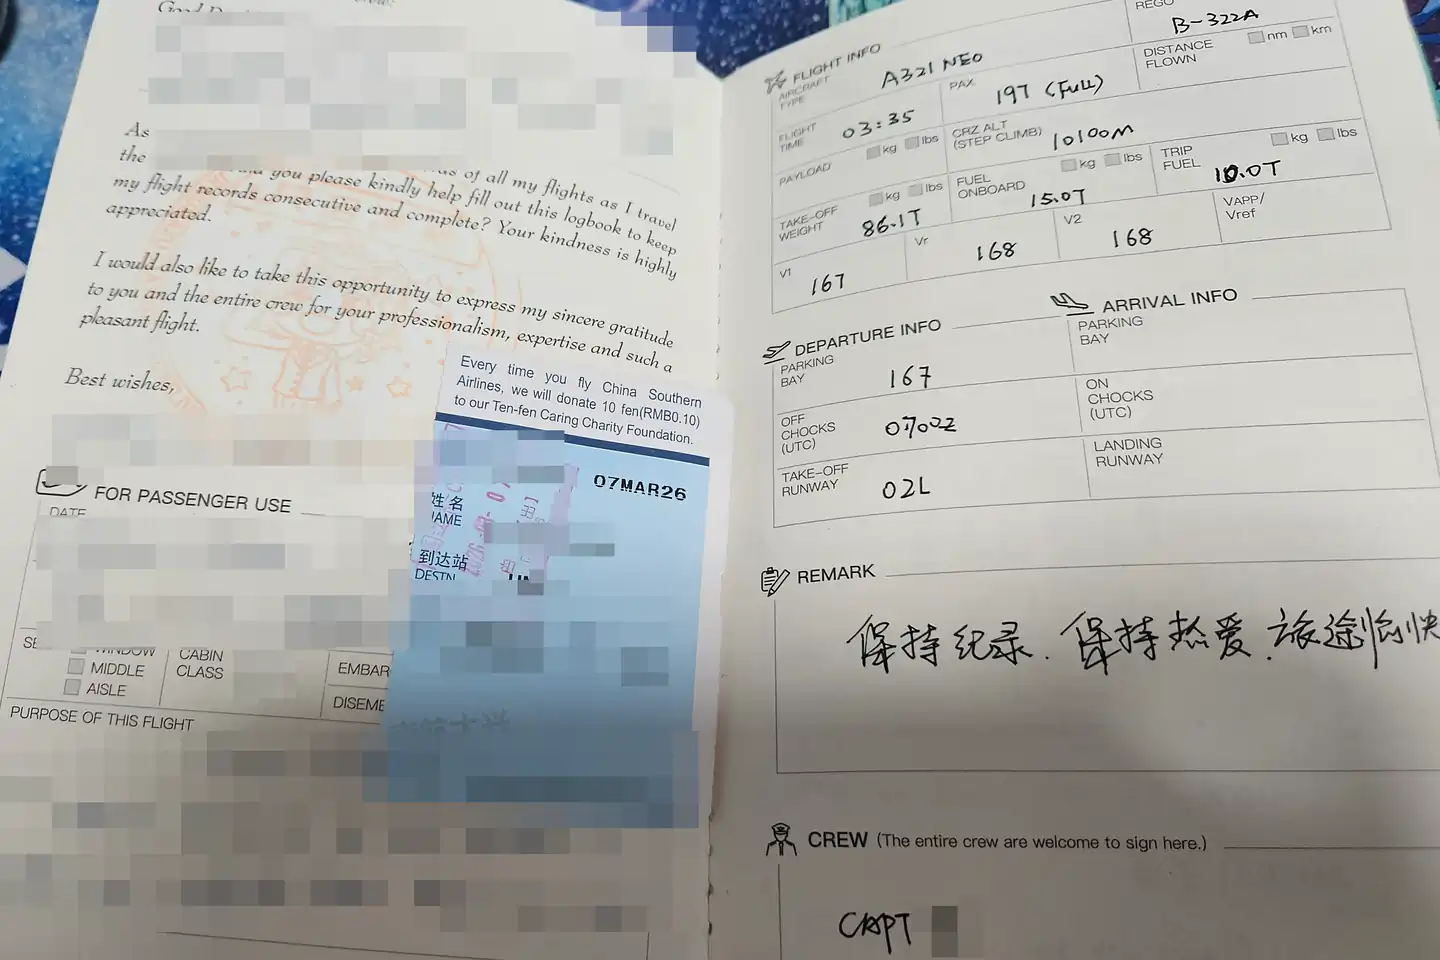 As
the
of all my flights as I travel
you please kindly help fill out this logbook to keep
my flight records consecutive and complete? Your kindness is highly
appreciated.
I would also like to take this opportunity to express my sincere gratitude
to you and the entire crew for your professionalism, expertise and such a
pleasant flight.
Best wishes,
FOR PASSENGER USE
DATE
WINDOW
MIDDLE
AISLE
CABIN
CLASS
EMBAR
DISEME
PURPOSE OF THIS FLIGHT
Every time you fly China Southern
Airlines, we will donate 10 fen(RMB0.10)
to our Ten-fen Caring Charity Foundation.
07MAR26
姓名
NAME
到达站
DESTN
REGO
B-322A
FLIGHT INFO
AIRCRAFT
TYPE
A321 NEO
PAX
197 (FULL)
DISTANCE
FLOWN
nm km
FLIGHT
TIME
03:35
CRZ ALT
(STEP CLIMB)
10100M
PAYLOAD
kg lbs
FUEL
ONBOARD
kg lbs
15.0T
TRIP
FUEL
kg lbs
10.0T
TAKE-OFF
WEIGHT
kg lbs
86.1T
V1
167
Vr
168
V2
168
VAPP/
Vref
DEPARTURE INFO
PARKING
BAY
167
OFF
CHOCKS
(UTC)
0700Z
TAKE-OFF
RUNWAY
02L
ARRIVAL INFO
PARKING
BAY
ON
CHOCKS
(UTC)
LANDING
RUNWAY
REMARK
保持纪录.保持热爱.旅途愉快
CREW (The entire crew are welcome to sign here.)
CAPT